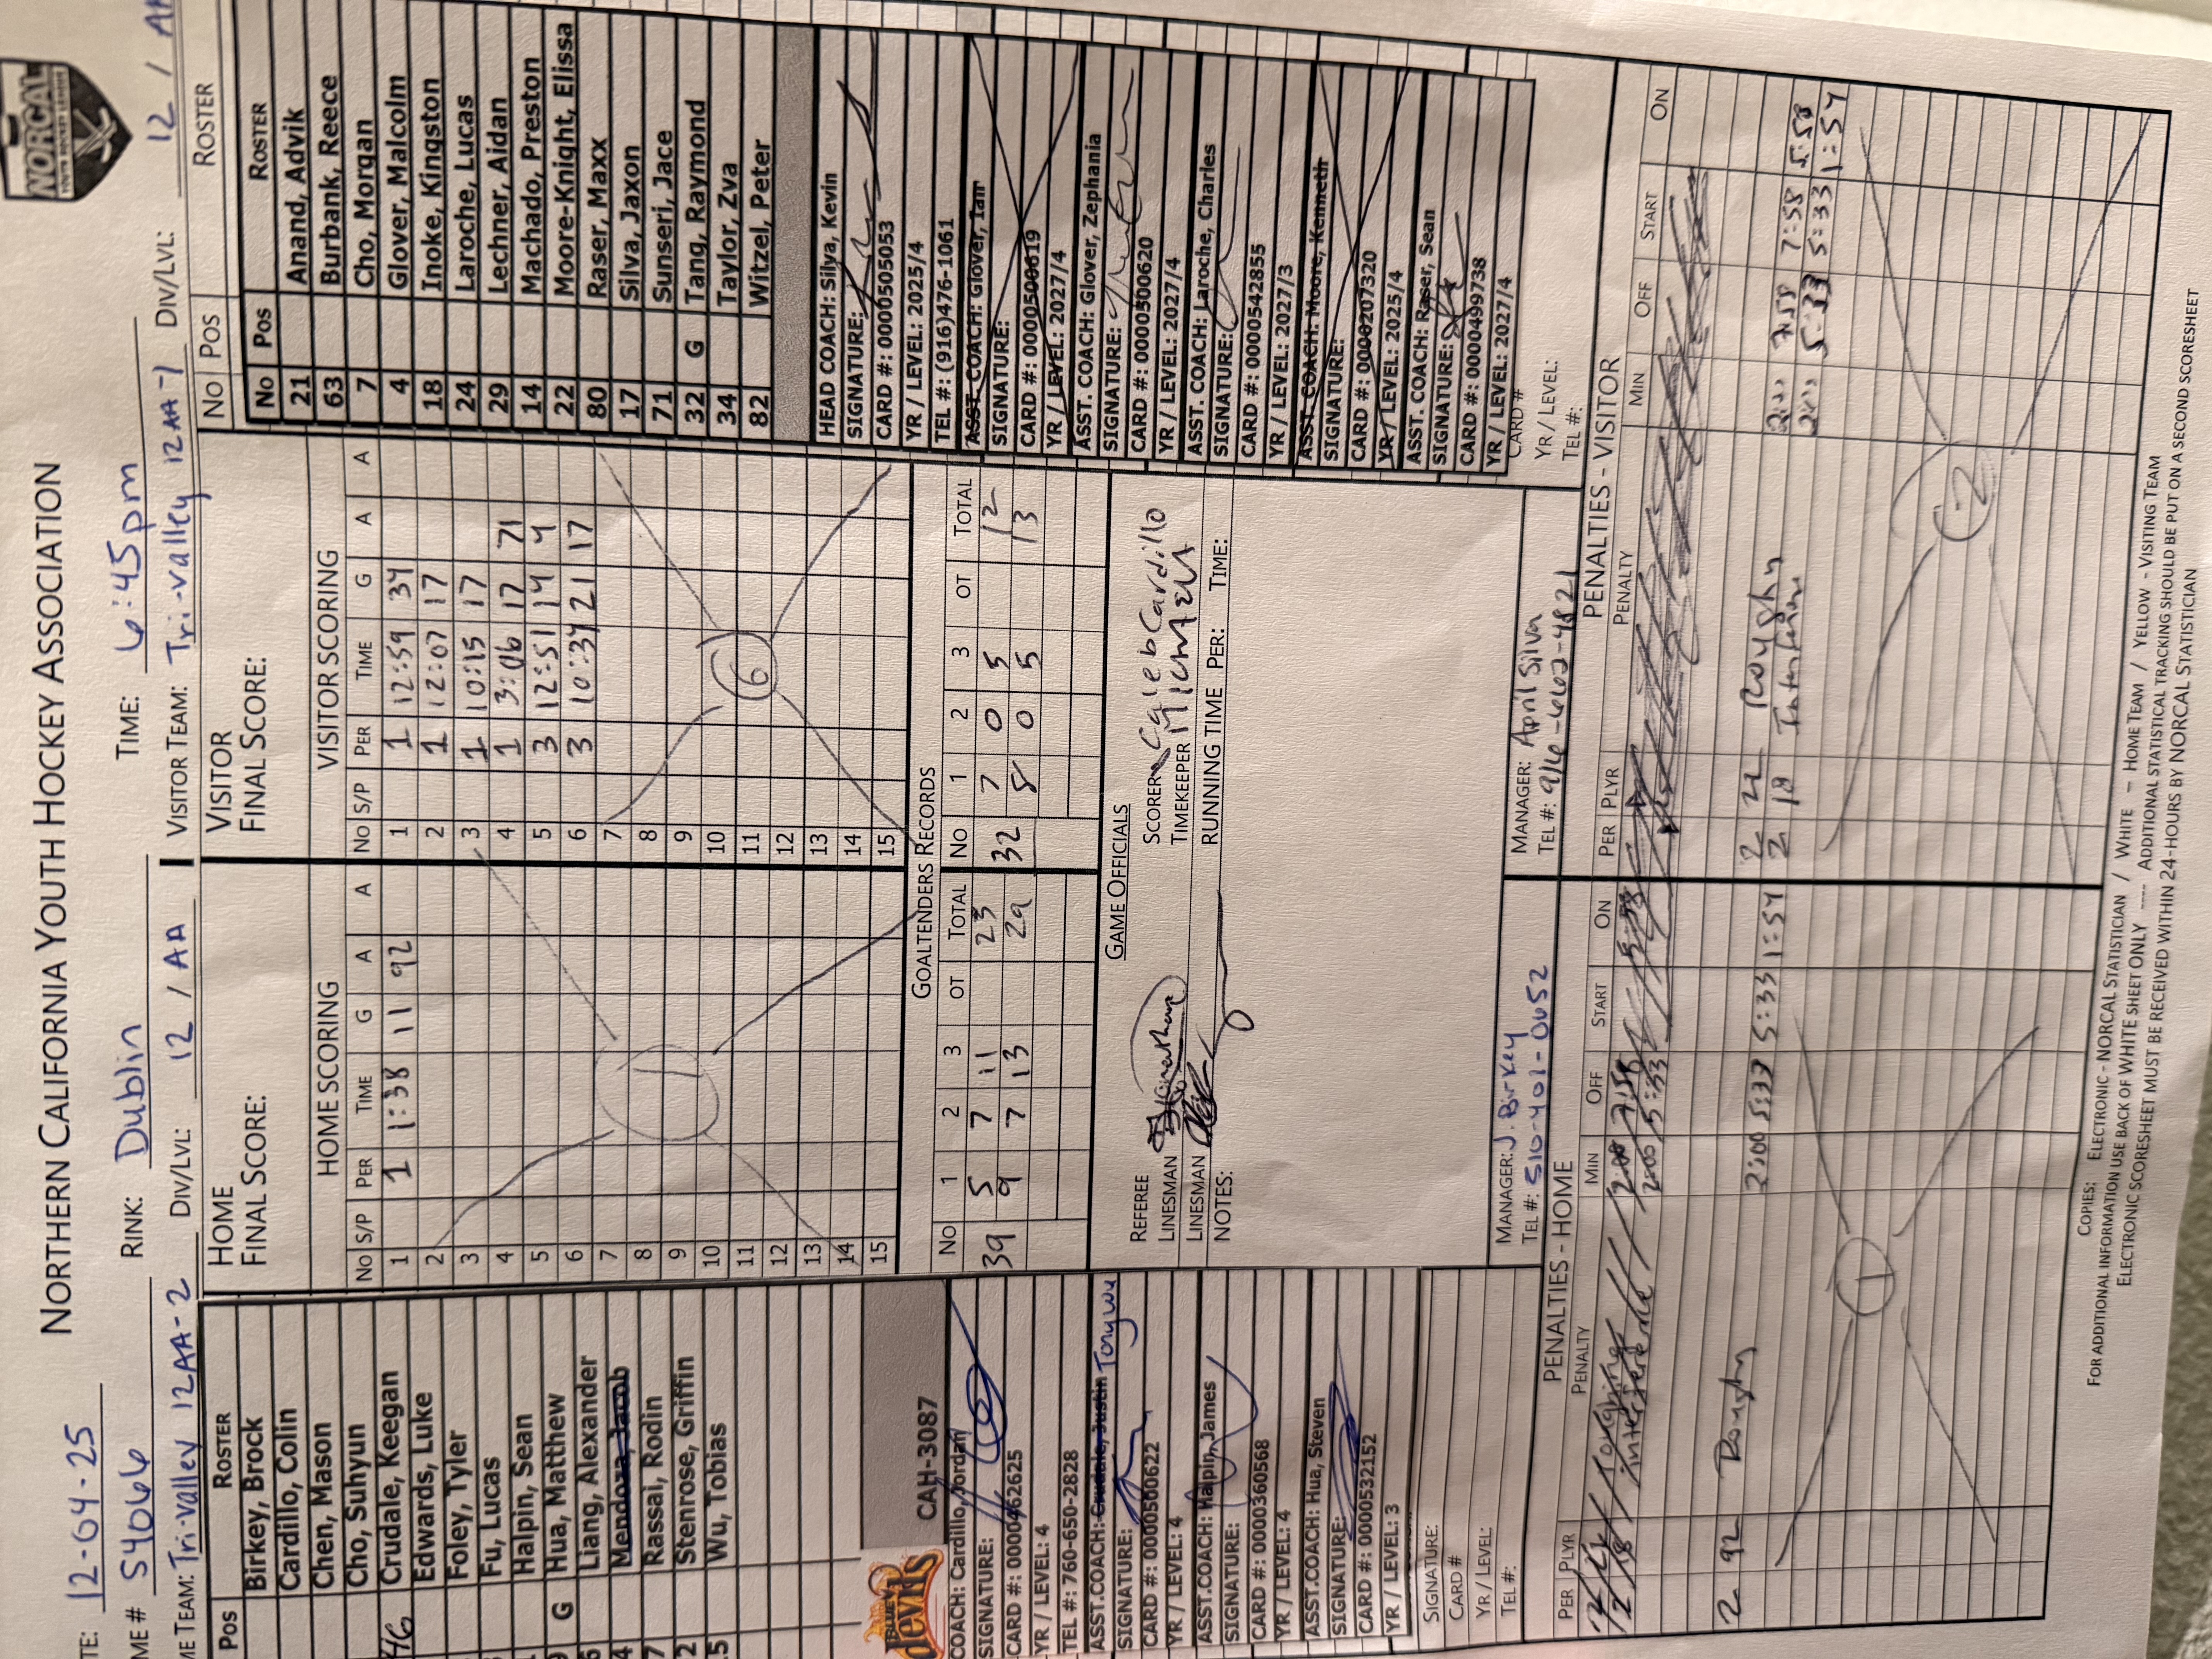 NORTHERN CALIFORNIA YOUTH HOCKEY ASSOCIATION
NORCAL
TE: 12-04-25
ME # 54066 RINK: Dublin TIME: 6:45pm
ME TEAM: Tri-Valley 12AA-2 DIV/LVL: 12 / AA VISITOR TEAM: Tri-Valley 12AA-1 DIV/LVL: 12 / AA
Pos ROSTER
Birkey, Brock
Cardillo, Colin
Chen, Mason
Cho, Suhyun
46 Crudale, Keegan
Edwards, Luke
Foley, Tyler
Fu, Lucas
Halpin, Sean
G Hua, Matthew
Liang, Alexander
4 Mendoza, Jacob
7 Rassai, Rodin
2 Stenrose, Griffin
5 Wu, Tobias
BLUE devils CAH-3087
COACH: Cardillo, Jordan
SIGNATURE:
CARD #: 0000462625
YR / LEVEL: 4
TEL #: 760-650-2828
ASST.COACH: Crudale, Justin Tony Wu
SIGNATURE:
CARD #: 0000500622
YR / LEVEL: 4
ASST.COACH: Halpin, James
SIGNATURE:
CARD #: 0000360568
YR / LEVEL: 4
ASST.COACH: Hua, Steven
SIGNATURE:
CARD #: 0000532152
YR / LEVEL: 3
SIGNATURE:
CARD #
YR / LEVEL:
TEL #:
HOME
FINAL SCORE:
HOME SCORING
NO S/P PER TIME G A A
1 1 1:38 11 92
2
3
4
5
6
7
8
9
10
11
12
13
14
15
1
VISITOR
FINAL SCORE:
VISITOR SCORING
NO S/P PER TIME G A A
1 1 12:59 34
2 1 12:07 17
3 1 10:15 17
4 1 3:06 17 71
5 3 12:51 14 4
6 3 10:37 21 17
7
8
9
10
11
12
13
14
15
6
GOALTENDERS RECORDS
NO 1 2 3 OT TOTAL NO 1 2 3 OT TOTAL
39 5 7 11 23 32 7 0 5 12
9 7 13 29 8 0 5 13
GAME OFFICIALS
REFEREE SCORER Caleb Cardillo
LINESMAN TIMEKEEPER
LINESMAN RUNNING TIME PER: TIME:
NOTES:
MANAGER: J. Birkey
TEL #: 510-401-0052
MANAGER: April Silva
TEL #: 916-662-4821
ROSTER
NO POS
No Pos ROSTER
21 Anand, Advik
63 Burbank, Reece
7 Cho, Morgan
4 Glover, Malcolm
18 Inoke, Kingston
24 Laroche, Lucas
29 Lechner, Aidan
14 Machado, Preston
22 Moore-Knight, Elissa
80 Raser, Maxx
17 Silva, Jaxon
71 Sunseri, Jace
32 G Tang, Raymond
34 Taylor, Zva
82 Witzel, Peter
HEAD COACH: Silva, Kevin
SIGNATURE:
CARD #: 0000505053
YR / LEVEL: 2025/4
TEL #: (916)476-1061
ASST. COACH: Glover, Ian
SIGNATURE:
CARD #: 0000500619
YR / LEVEL: 2027/4
ASST. COACH: Glover, Zephania
SIGNATURE:
CARD #: 0000500620
YR / LEVEL: 2027/4
ASST. COACH: Laroche, Charles
SIGNATURE:
CARD #: 0000542855
YR / LEVEL: 2027/3
ASST. COACH: Moore, Kenneth
SIGNATURE:
CARD #: 0000207320
YR / LEVEL: 2025/4
ASST. COACH: Raser, Sean
SIGNATURE:
CARD #: 0000499738
YR / LEVEL: 2027/4
CARD #
YR / LEVEL:
TEL #:
PENALTIES - HOME
PER PLYR PENALTY MIN OFF START ON
2:00 7:58
2 18 interference 2:00 5:33
2 92 Roughing 2:00 5:33 5:33 1:54
1
PENALTIES - VISITOR
PER PLYR PENALTY MIN OFF START ON
2 22 Roughin 2:00 7:58 7:58 5:58
2 18 Interference 2:00 5:33 5:33 1:54
2
COPIES: ELECTRONIC - NORCAL STATISTICIAN / WHITE - HOME TEAM / YELLOW - VISITING TEAM
FOR ADDITIONAL INFORMATION USE BACK OF WHITE SHEET ONLY ---- ADDITIONAL STATISTICAL TRACKING SHOULD BE PUT ON A SECOND SCORESHEET
ELECTRONIC SCORESHEET MUST BE RECEIVED WITHIN 24-HOURS BY NORCAL STATISTICIAN